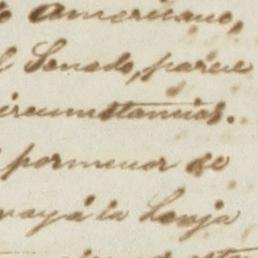 o americano,
l Senado, parece
ircumstancias.
pormenor de
vaya á la Lonja